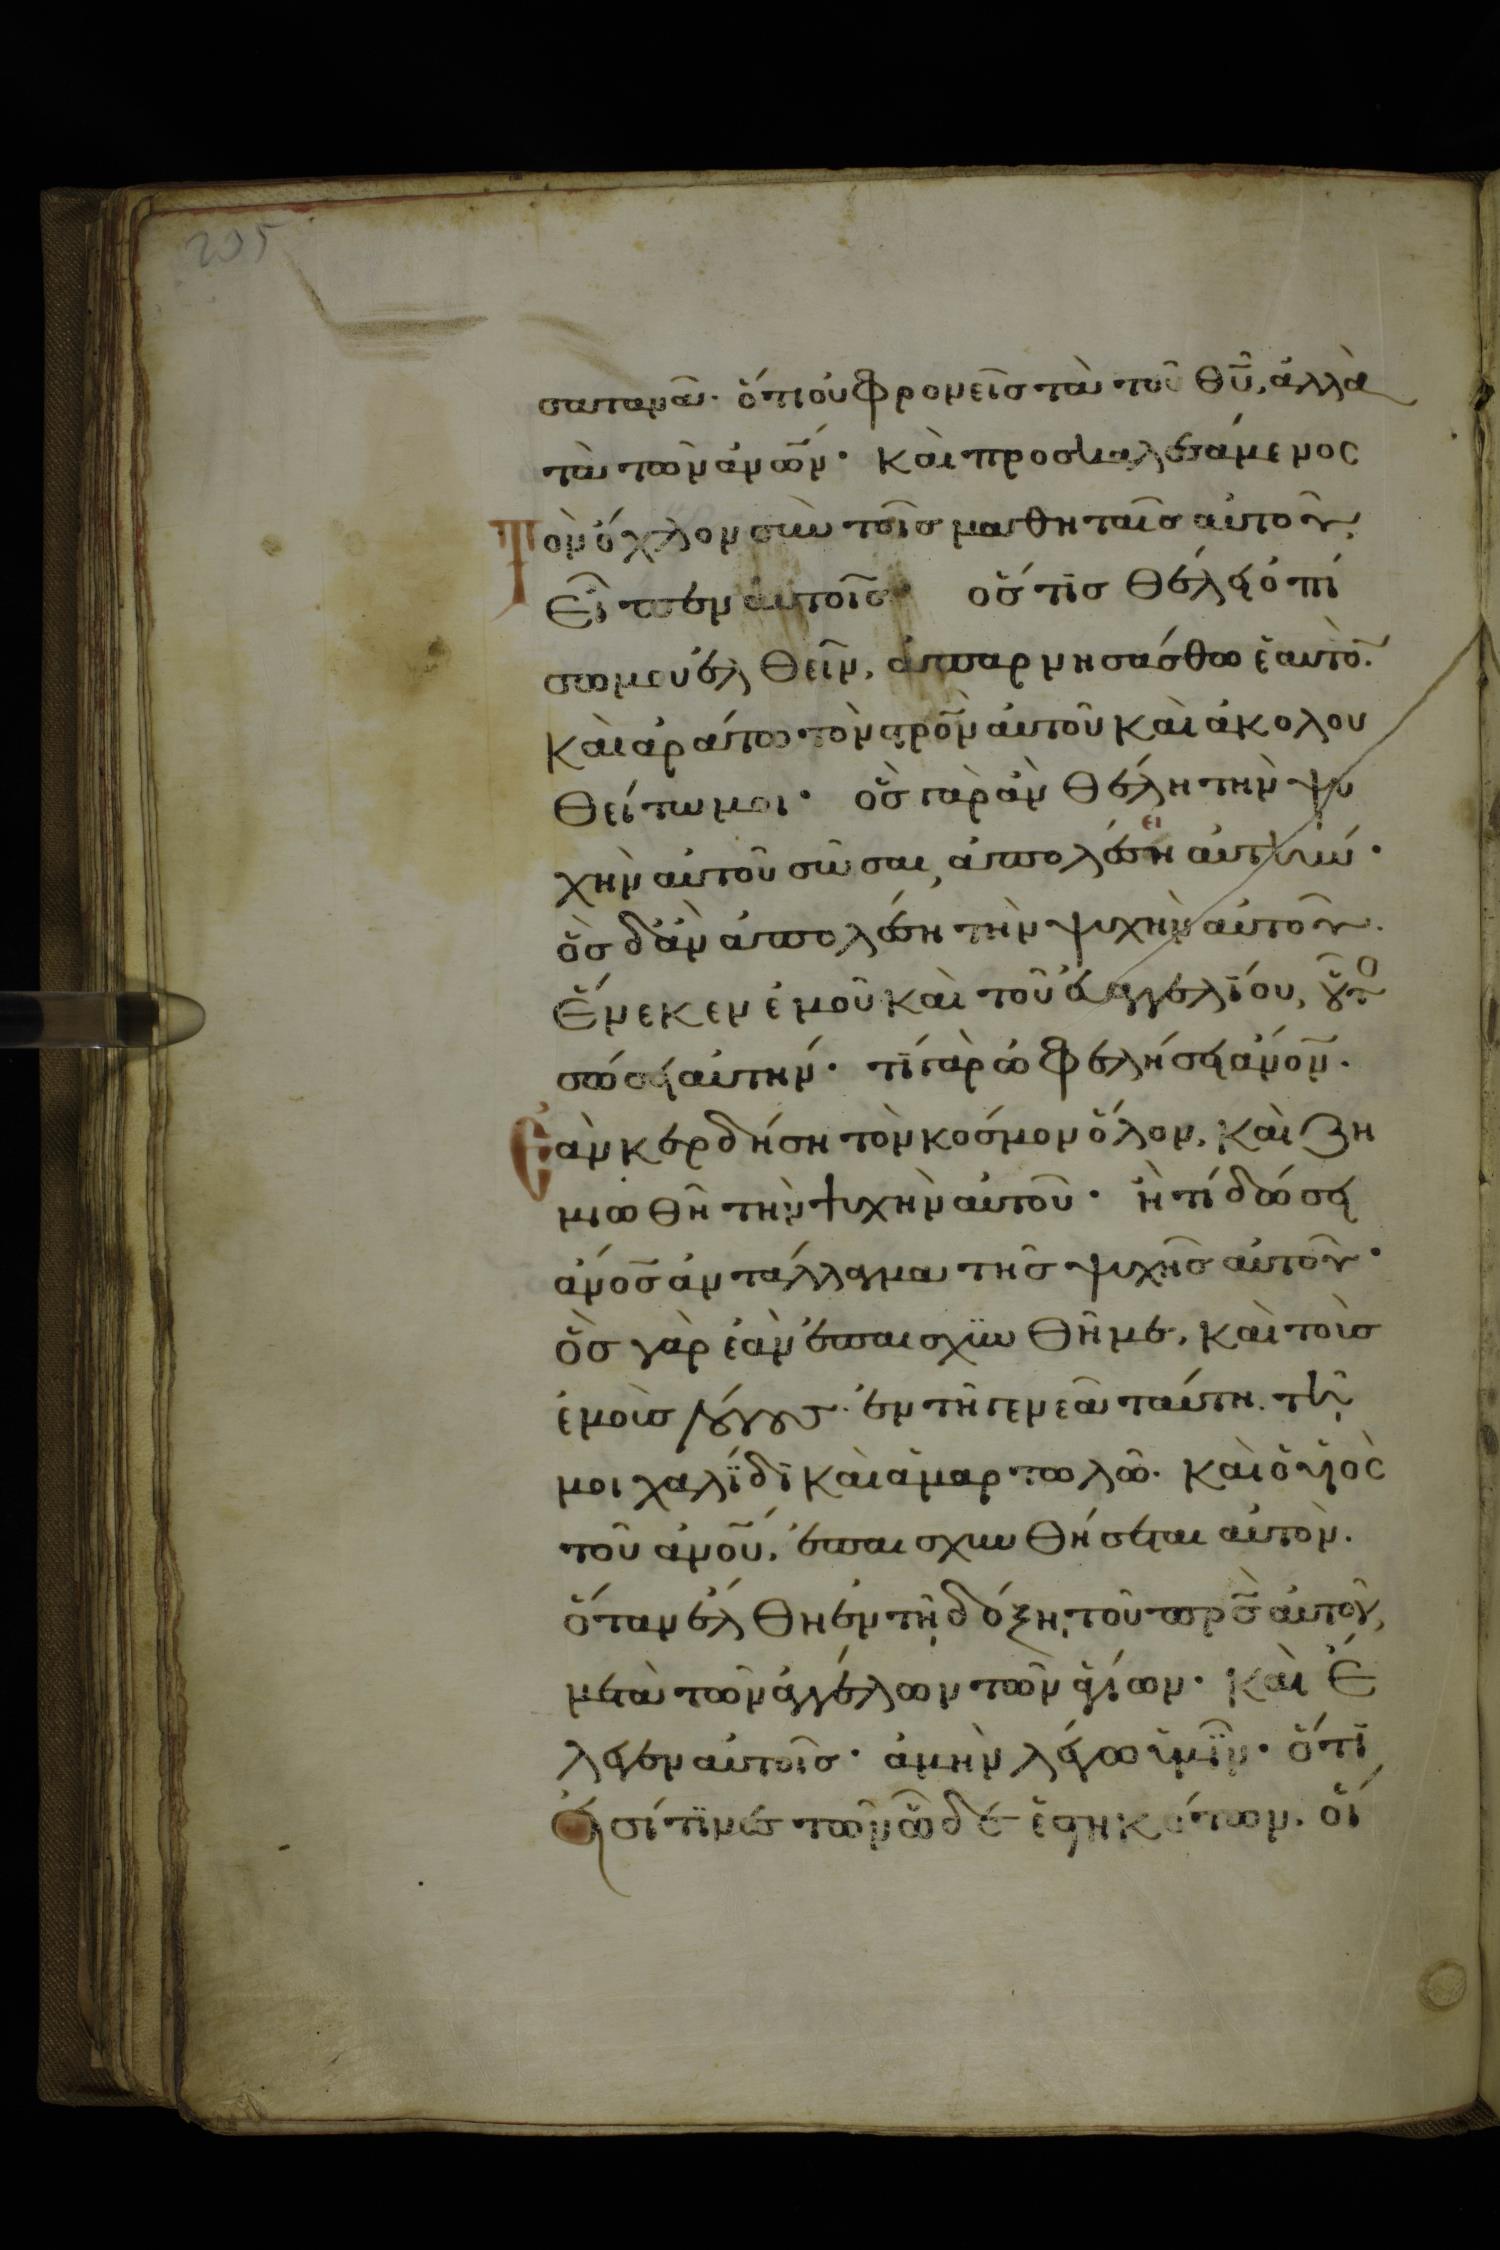 205
σατανᾶ· ὅτι οὐ φρονεῖς τὰ τοῦ θ̅υ̅, ἀλλὰ
τὰ τῶν ἀν̅ω̅ν· καὶ προσκαλεσάμενος
τὸν ὄχλον σὺν τοῖς μαθηταῖς αὐτοῦ,
εἶπεν αὐτοῖς· ὅστις θέλει ὀπί
σω μου ἐλθεῖν, ἀπαρνησάσθω ἑαυτὸ̅.
καὶ ἀράτω τὸν σ̅ρ̅ο̅ν αὐτοῦ καὶ ἀκολου
θείτω μοι· ὃς γὰρ ἂν θέλη τὴν ψυ
χὴν αὐτοῦ σῶσαι, ἀπολέσει αὐτήν·
ὃς δ' ἂν ἀπολέση τὴν ψυχὴν αὐτοῦ.
ἕνεκεν ἐμοῦ καὶ τοῦ εὐαγγελίου, οὗτο
σώσει αὐτήν· τί γὰρ ὠφελήσει ἄν̅ο̅ν̅.
ἐὰν κερδήση τὸν κόσμον ὅλον, καὶ ζη
μιωθῆ τὴν ψυχὴν αὐτοῦ· ἢ τί δώσει
ἄν̅ο̅ς̅ ἀντάλλαγμα τῆς ψυχῆς αὐτοῦ·
ὃς γὰρ ἐὰν ἐπαισχυνθῆ με, καὶ τοὺς
ἐμοὺς λόγους· ἐν τῆ γενεᾶ ταύτη. τῆ
μοιχαλίδι καὶ ἁμαρτωλῶ· καὶ ὁ υἱὸς
τοῦ ἀν̅ο̅υ̅, ἐπαισχυνθήσεται αὐτόν.
ὅταν ἔλθη ἐν τῆ δόξη, τοῦ π̅ρ̅ς̅ αὐτοῦ,
μετὰ τῶν ἀγγέλων τῶν ἁγίων· καὶ ἔ
λεγεν αὐτοῖς· ἀμὴν λέγω ὑμῖν· ὅτι
εἰσί τινες τῶν ὧδε ἑστηκότων. οἵ